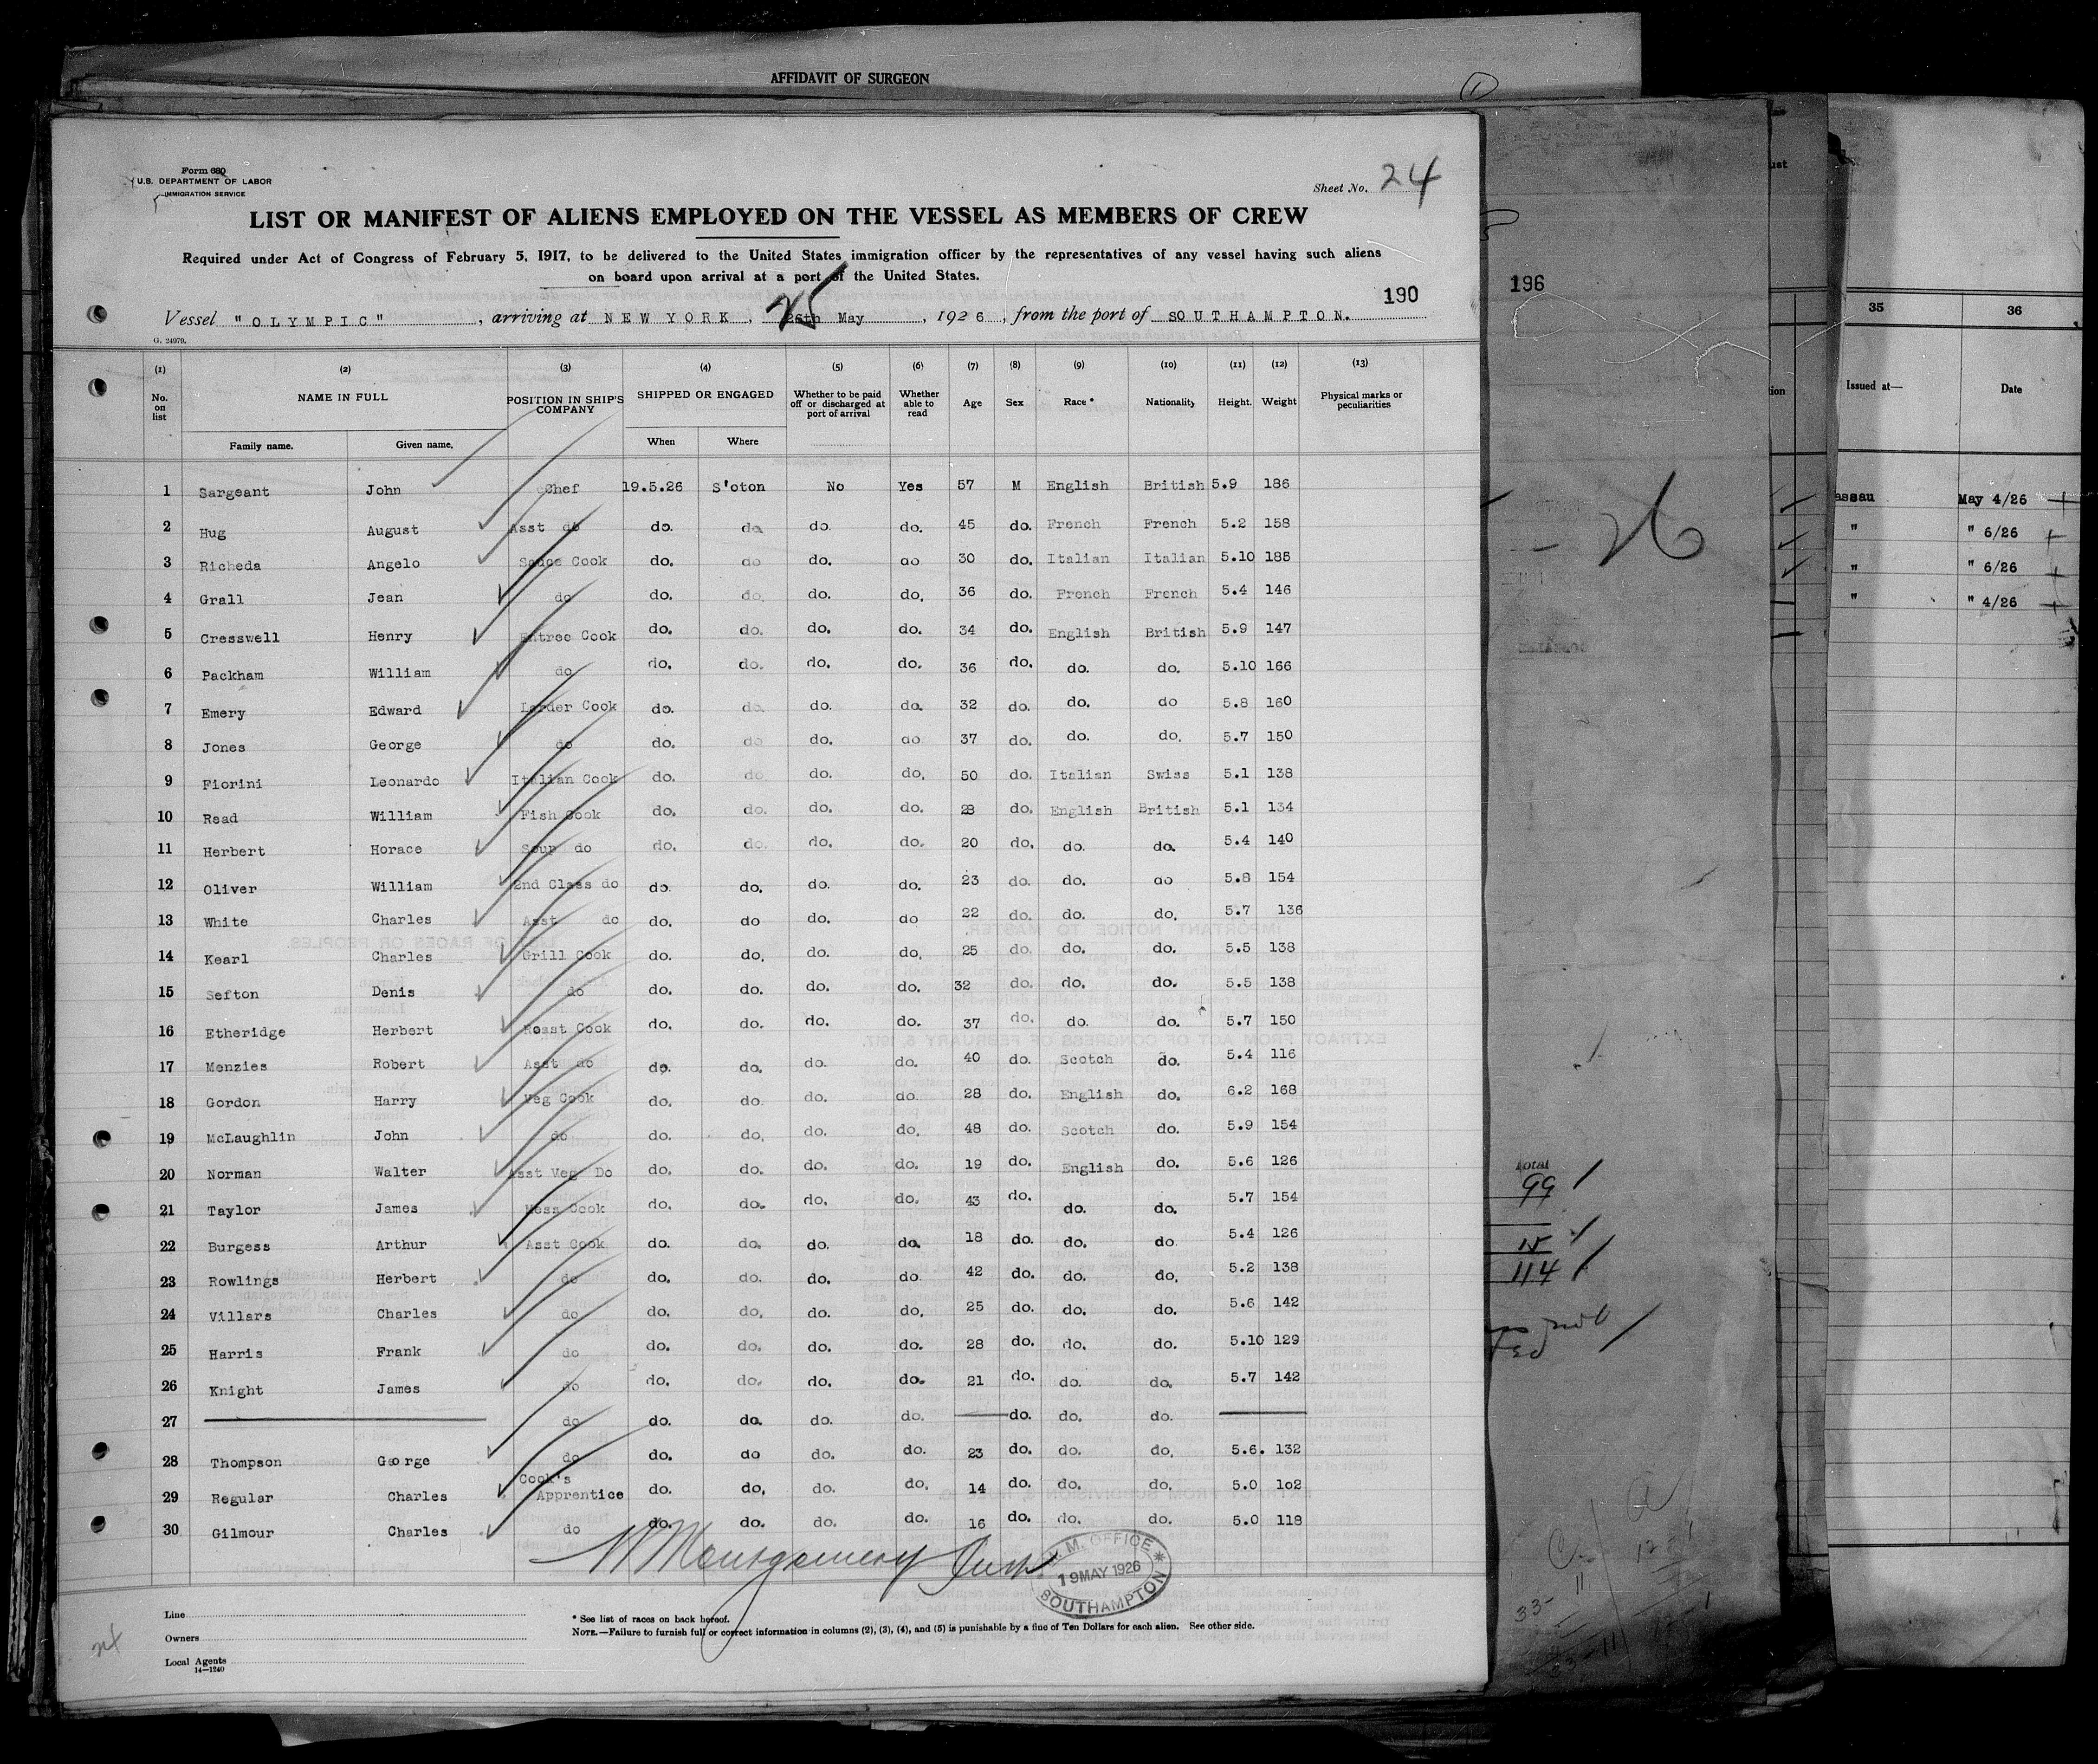 AFFIDAVIT OF SURGEON
1
Form 680
U.S. DEPARTMENT OF LABOR
IMMIGRATION SERVICE
Sheet No. 24
LIST OR MANIFEST OF ALIENS EMPLOYED ON THE VESSEL AS MEMBERS OF CREW
Required under Act of Congress of February 5, 1917, to be delivered to the United States immigration officer by the representatives of any vessel having such aliens
on board upon arrival at a port of the United States.
190
Vessel "OLYMPIC", arriving at NEW YORK, 26th May 25, 1926, from the port of SOUTHAMPTON.
G. 24979.
(1) (2) (3) (4) (5) (6) (7) (8) (9) (10) (11) (12) (13)
No. on list NAME IN FULL POSITION IN SHIP'S COMPANY SHIPPED OR ENGAGED Whether to be paid off or discharged at port of arrival Whether able to read Age Sex Race * Nationality Height. Weight Physical marks or peculiarities
Family name. Given name. When Where
1 Sargeant John Chef 19.5.26 S'oton No Yes 57 M English British 5.9 186
2 Hug August Asst do do. do do do. 45 do. French French 5.2 158
3 Richeda Angelo Sauce Cook do. do do. do 30 do. Italian Italian 5.10 185
4 Grall Jean do do. do. do. do. 36 do. French French 5.4 146
5 Cresswell Henry Entree Cook do. do. do. do. 34 do. English British 5.9 147
6 Packham William do do. do. do. do. 36 do. do. do. 5.10 166
7 Emery Edward Larder Cook do. do. do. do. 32 do. do. do 5.8 160
8 Jones George do do. do do. do 37 do. do. do. 5.7 150
9 Fiorini Leonardo Italian Cook do. do do. do. 50 do. Italian Swiss 5.1 138
10 Read William Fish Cook do. do. do. do. 28 do. English British 5.1 134
11 Herbert Horace Soup do do. do. do. do. 20 do. do. do. 5.4 140
12 Oliver William 2nd Class do do. do. do. do. 23 do. do. do 5.8 154
13 White Charles Asst do do. do do. do 22 do. do. do. 5.7 136
14 Kearl Charles Grill Cook do. do. do. do. 25 do. do. do. 5.5 138
15 Sefton Denis do do. do. do. do. 32 do. do. do. 5.5 138
16 Etheridge Herbert Roast Cook do. do. do. do. 37 do. do. do. 5.7 150
17 Menzies Robert Asst do do. do. do. do. 40 do. Scotch do. 5.4 116
18 Gordon Harry Veg Cook do. do. do. do 28 do. English do. 6.2 168
19 McLaughlin John do do. do. do. do. 48 do. Scotch do. 5.9 154
20 Norman Walter Asst Veg Do do. do. do. do. 19 do. English do. 5.6 126
21 Taylor James Mess Cook do. do. do. do. 43 do. do. do. 5.7 154
22 Burgess Arthur Asst Cook do. do. do. do. 18 do. do. do 5.4 126
23 Rowlings Herbert do do. do. do. do 42 do. do. do. 5.2 138
24 Villars Charles do do. do. do. do. 25 do. do. do. 5.6 142
25 Harris Frank do do. do. do. do. 28 do. do. do. 5.10 129
26 Knight James do do. do. do. do. 21 do. do. do. 5.7 142
27 do do. do. do. do. do. do. do.
28 Thompson George do do. do do. do. 23 do. do. do. 5.6. 132
29 Regular Charles Cook's Apprentice do. do. do. do. 14 do. do. do. 5.0 102
30 Gilmour Charles do do. do. do. do. 16 do. do. do. 5.0 118
M.M. OFFICE
19 MAY 1926
SOUTHAMPTON
Line
Owners
Local Agents
14—1240
* See list of races on back hereof.
NOTE.—Failure to furnish full or correct information in columns (2), (3), (4), and (5) is punishable by a fine of Ten Dollars for each alien. See other side.
24
196
26
Total
99
15
114
35 36
Issued at— Date
assau May 4/26
" " 6/26
" " 6/26
" " 4/26